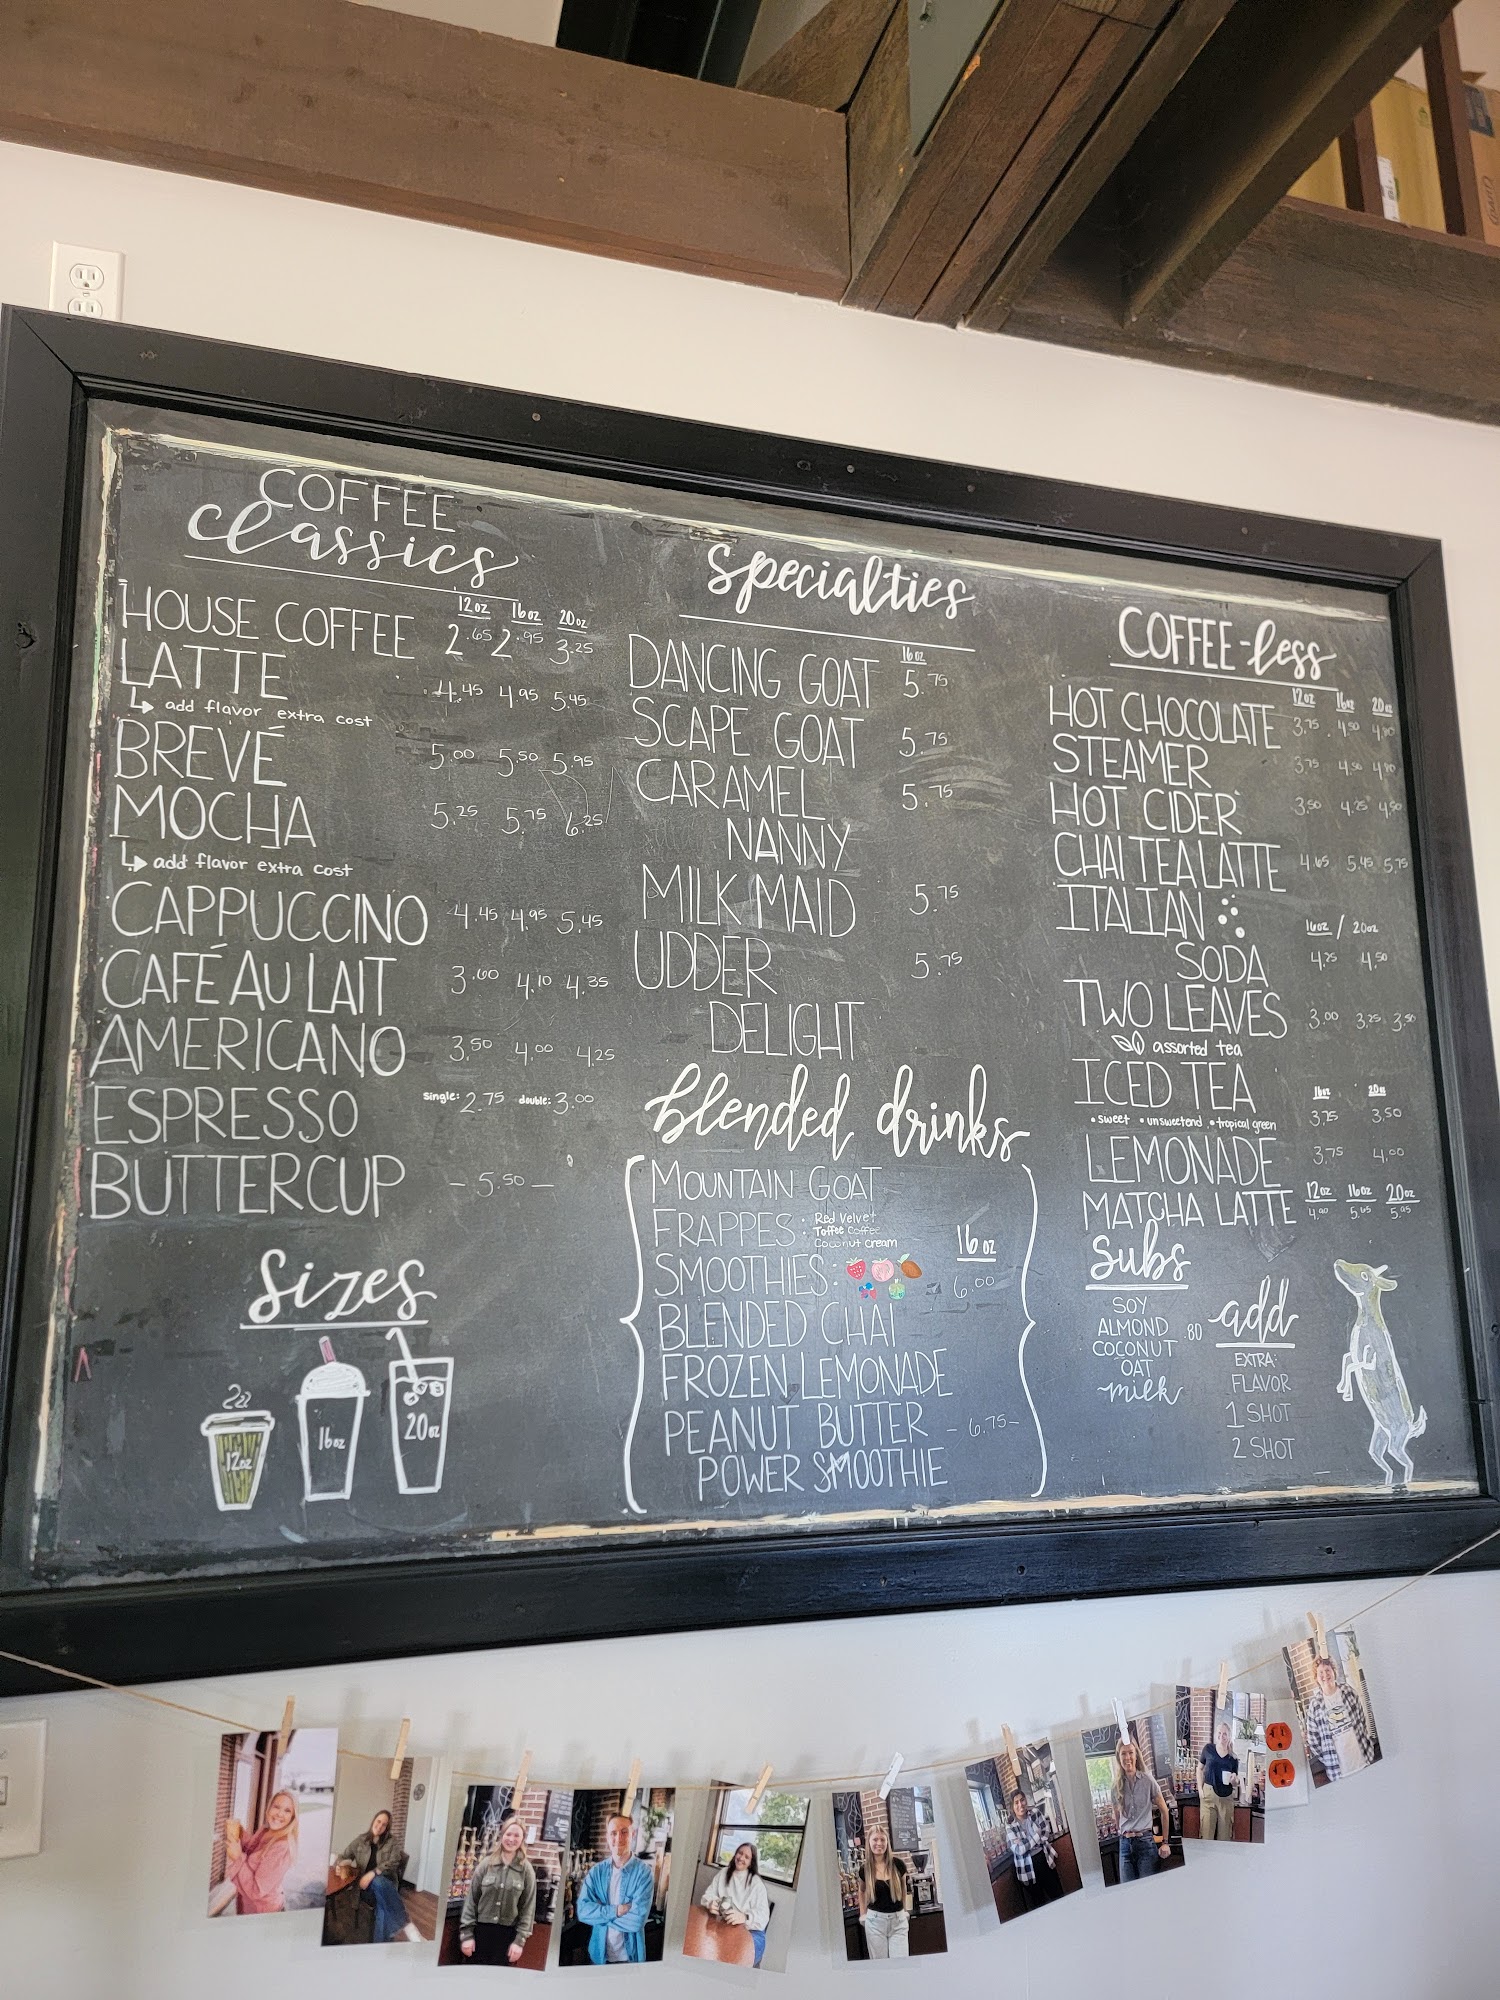 COFFEE
classics
12oz 16oz 20oz
HOUSE COFFEE 2.65 2.95 3.25
LATTE 4.45 4.95 5.45
add flavor extra cost
BREVÉ 5.00 5.50 5.95
MOCHA 5.25 5.75 6.25
add flavor extra cost
CAPPUCCINO 4.45 4.95 5.45
CAFÉ AU LAIT 3.60 4.10 4.35
AMERICANO 3.50 4.00 4.25
ESPRESSO single: 2.75 double: 3.00
BUTTERCUP - 5.50 -
Sizes
12oz 16oz 20oz
Specialties
16oz
DANCING GOAT 5.75
SCAPE GOAT 5.75
CARAMEL 5.75
NANNY
MILK MAID 5.75
UDDER 5.75
DELIGHT
blended drinks
MOUNTAIN GOAT
FRAPPES: Red Velvet
Toffee Coffee
Coconut Cream
16oz
SMOOTHIES: 6.00
BLENDED CHAI
FROZEN LEMONADE
PEANUT BUTTER - 6.75 -
POWER SMOOTHIE
COFFEE-less
12oz 16oz 20oz
HOT CHOCOLATE 3.75 4.50
STEAMER 3.75 4.50
HOT CIDER 3.50 4.25 4.50
CHAI TEA LATTE 4.65 5.45 5.75
ITALIAN 16oz / 20oz
SODA 4.25 4.50
TWO LEAVES 3.00 3.25 3.50
assorted tea
ICED TEA 16oz 20oz
3.25 3.50
• sweet • unsweetend • tropical green
LEMONADE 3.75 4.00
MATCHA LATTE 12oz 16oz 20oz
4.90 5.45
Subs
SOY
ALMOND .80
COCONUT
OAT
milk
add
EXTRA:
FLAVOR
1 SHOT
2 SHOT